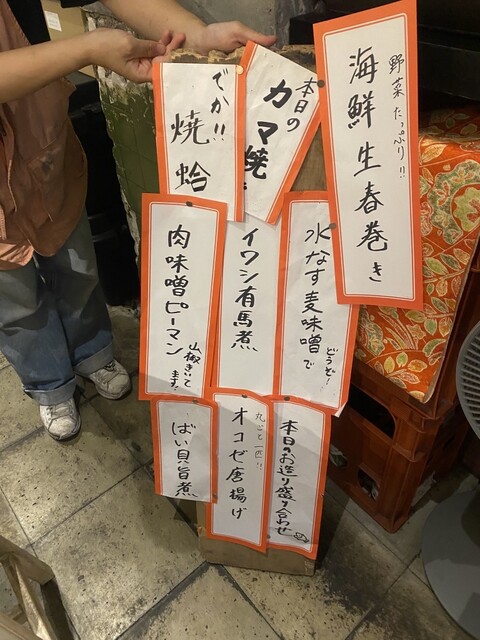 野菜たっぷり!!
海鮮生春巻き
本日の
カマ焼
でか!!
焼蛤
水なす麦味噌で
どうぞ!
イワシ有馬煮
肉味噌ピーマン
山椒きいて
ます!
本日のお造り盛り合わせ
丸ごと一匹!!
オコゼ唐揚げ
ばい貝旨煮